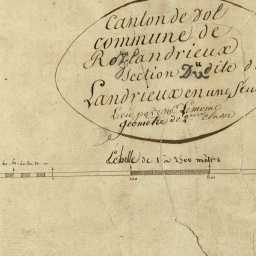 Canton de Dol
Commune de
Rozlandrieux
Section D dite d
Landrieux en une feu
Levé par Mr
Géomètre de 2me classe
Echelle de 1 à 2500 mètres